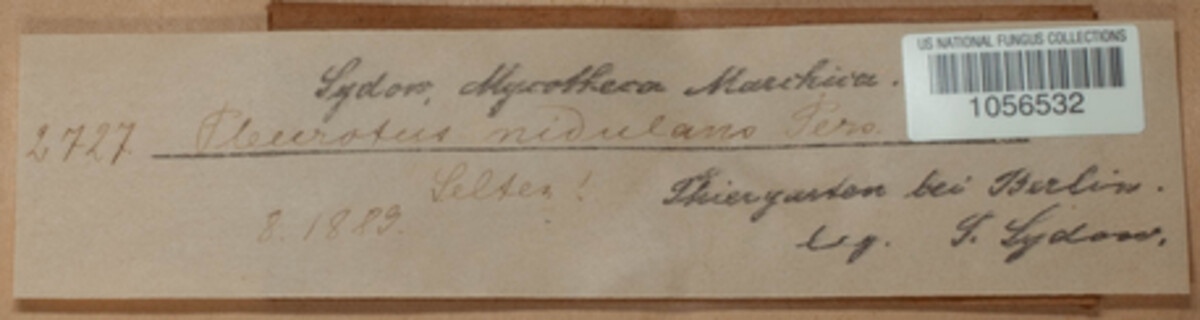 US NATIONAL FUNGUS COLLECTIONS
1056532
Sydow, Mycotheca Marchica.
2727. Pleurotus nidulans Pers.
Selten!
8. 1889.
Thiergarten bei Berlin.
leg. P. Sydow.